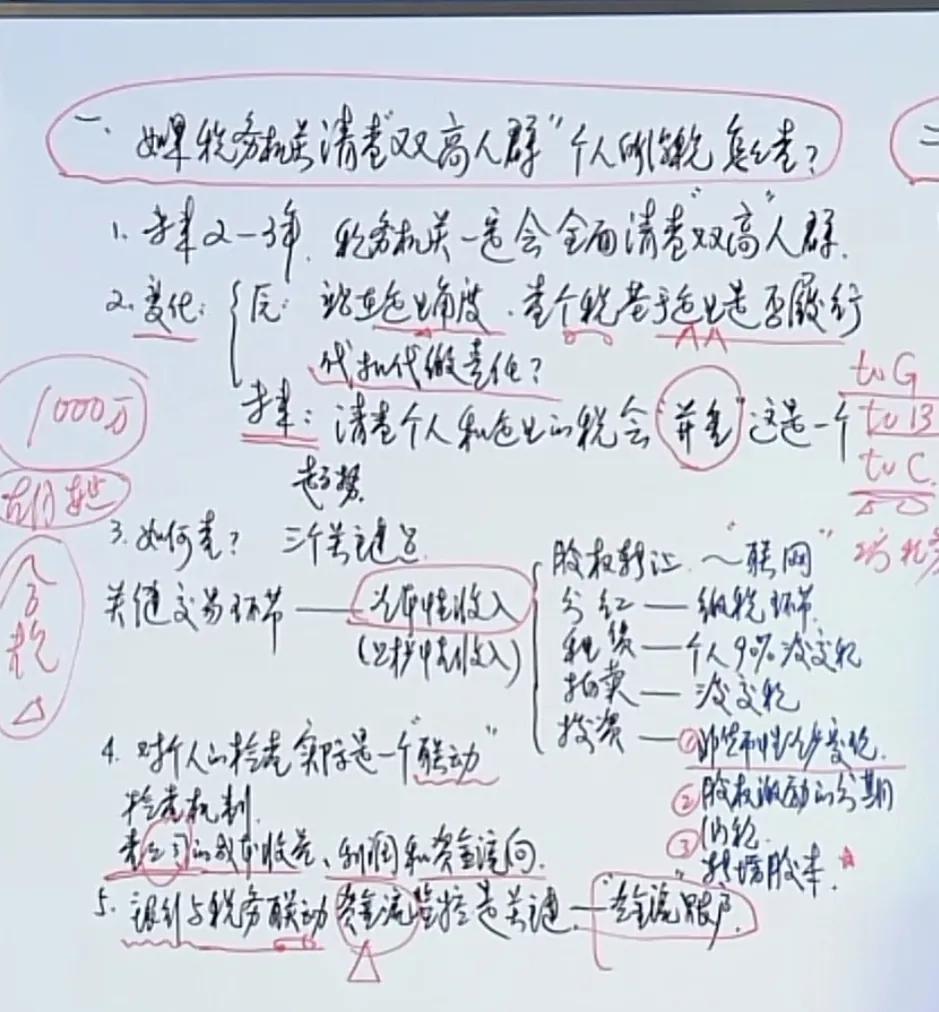 一、如果税务机关清查“双高人群”个人所得税怎么查?
1. 未来2-3年,税务机关一定会全面清查“双高”人群.
2. 变化: 原: 站在企业角度,查个税基于企业是否履行
代扣代缴责任?
未来: 清查个人和企业的税会“并重”这是一个
趋势.
to G
to B
to C
1000万
3. 如何查? 三个关键点
关键交易环节——资本性收入
(也叫中性收入)
股权转让 ~“联网”
分红——缴税环节
租赁——个人90%没交税
拍卖——没交税
投资——①非货币性
②股权激励的分期
③
转增股本.
4. 对个人的检查实际是一个“联动”
检查机制.
查公司的成本收益、利润和资金流向.
5. 银行与税务联动 资金流监控是关键.——“资金流